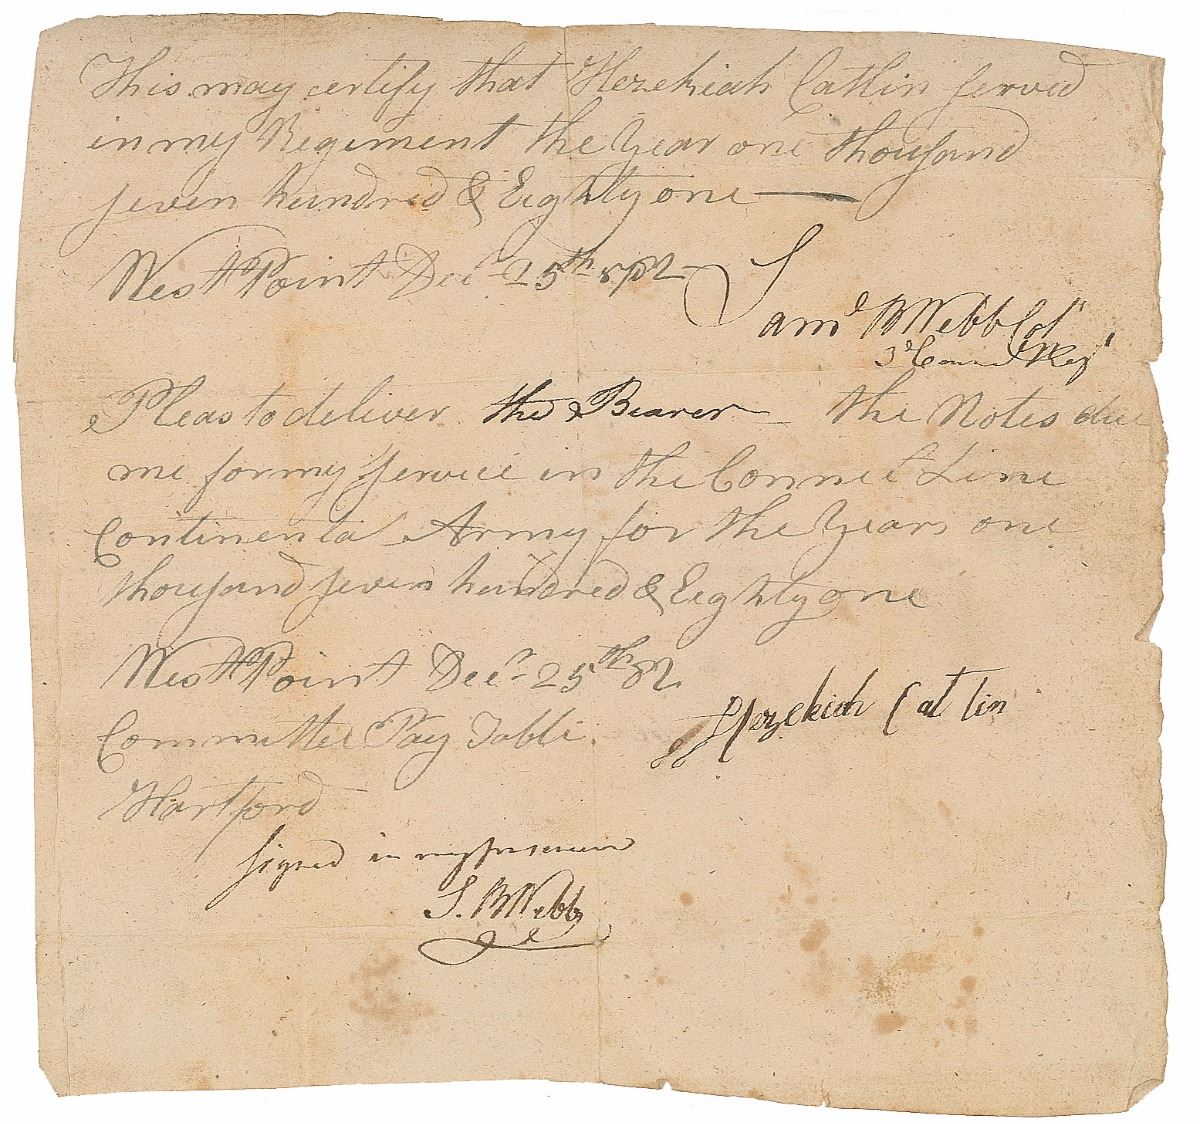 This may certify that Hezekiah Catlin served
in my Regiment the Year one thousand
seven hundred & Eighty one
West Point Decr 25th 1782
Saml B Webb Colo
3d Connt Regt
Pleas to deliver the Bearer the Notes due
me for my service in the Connect Line
Continental Army for the Years one
thousand seven hundred & Eighty one
West Point Decr 25th 82
Hezekiah Catlin
Committee Pay Table
Hartford
signed in my presence
S. B Webb